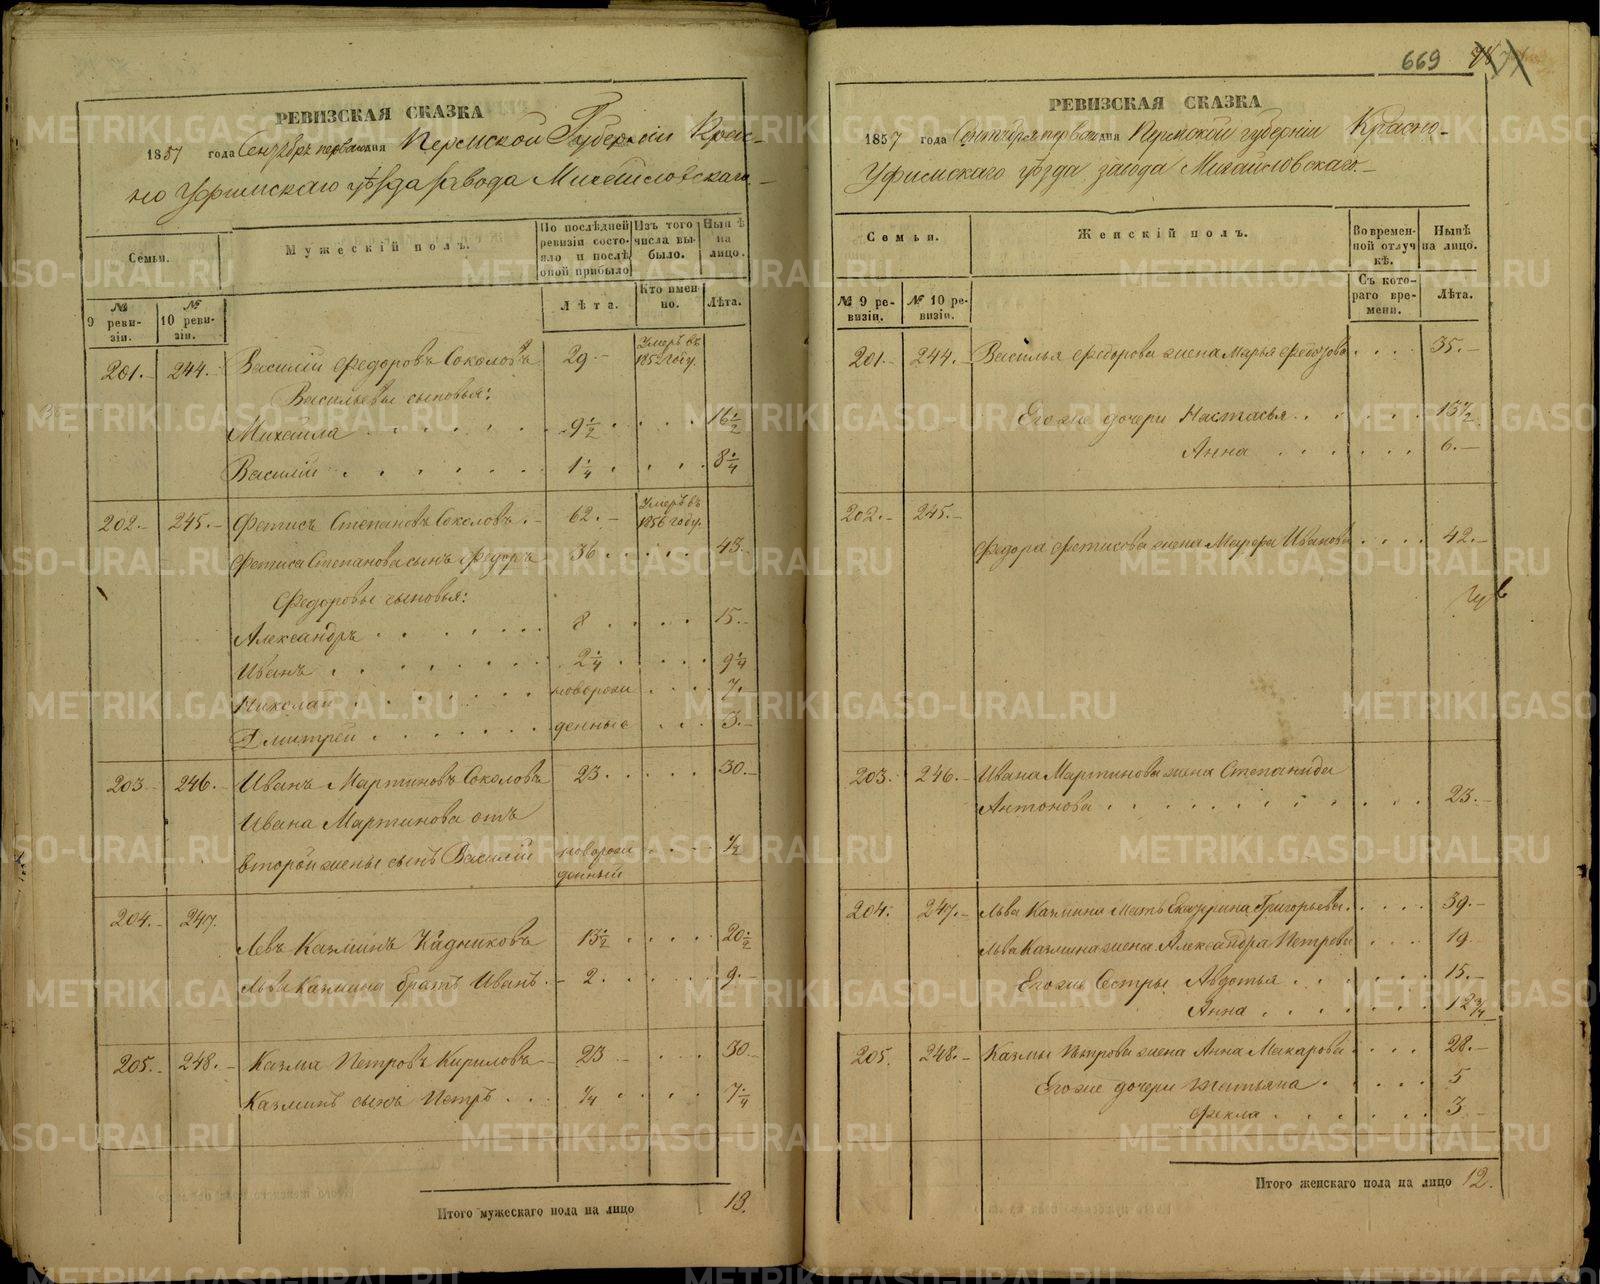 РЕВИЗСКАЯ СКАЗКА
1857 года Сентября первого дня Пермской Губернiи Крас-
но Уфимскаго уѣзда завода Михайловскаго.
Семьи.
Мужескiй полъ.
По послѣдней ревизiи состо-яло и послѣ оной прибыло
Изъ того числа вы-было.
Нынѣ на лицо.
№ 9 реви-зiи.
№ 10 реви-зiи.
Лѣта.
Кто имен-но.
Лѣта.
201. 244. Василiй Федоровъ Соколовъ 29 Умеръ въ 1852 году.
Васильевы сыновья:
Михаила 9 1/2 16 1/2
Василiй 1 1/4 8 1/4
202. 245. Фетисъ Степановъ Соколовъ. 62. Умеръ въ 1856 году.
Фетиса Степанова сынъ Федоръ 36 43.
Федоровы сыновья:
Александръ 8 15.
Иванъ 2 1/4 9 1/4
Николай новорож 7.
Дмитрей денные 3.
203 246. Иванъ Мартиновъ Соколовъ 23 30.
Ивана Мартинова отъ
второй жены сынъ Василiй новорож денный 1/2
204. 247.
Левъ Казминъ Кадниковъ 13 1/2 20 1/2
Льва Казмина братъ Иванъ. 2 9.
205. 248. Казма Петровъ Кириловъ 23 30
Казминъ сынъ Петръ 1/4 7 1/4
Итого мужескаго пола на лицо 13.
669
РЕВИЗСКАЯ СКАЗКА
1857 года Сентября первого дня Пермской губернiи Красно-
Уфимскаго уѣзда завода Михайловскаго.
Семьи.
Женскiй полъ.
Во времен-ной отлуч-кѣ.
Нынѣ на лицо.
№ 9 ре-визiи.
№ 10 ре-визiи.
Съ кото-раго вре-мени.
Лѣта.
201. 244. Василья Федорова жена Марья Федорова 35.
Его же дочери Настасья 13 1/2
Анна 6.
202. 245.
Федора Фетисова жена Марфа Иванова 42.
203. 246. Ивана Мартинова жена Степанида
Антонова 23.
204. 247. Льва Казмина Мать Екатерина Григорьева 39.
Льва Казмина жена Александра Петрова 19
Его же Сестры Авдотья 15.
Анна 12 3/4
205. 248. Казмы Петрова жена Анна Макарова 28.
Его же дочери Татьяна 5
Фекла 3
Итого женскаго пола на лицо 12.
METRIKI.GASO-URAL.RU